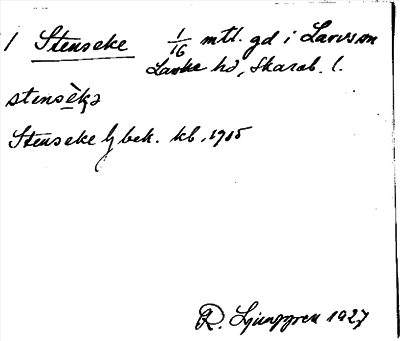 1 Stenseke 1/16 mtl. gd i Larvs sn
Laske hd, Skarab. l.
stensèkə
Stenseke bek. kb. 1915
R. Ljunggren 1927